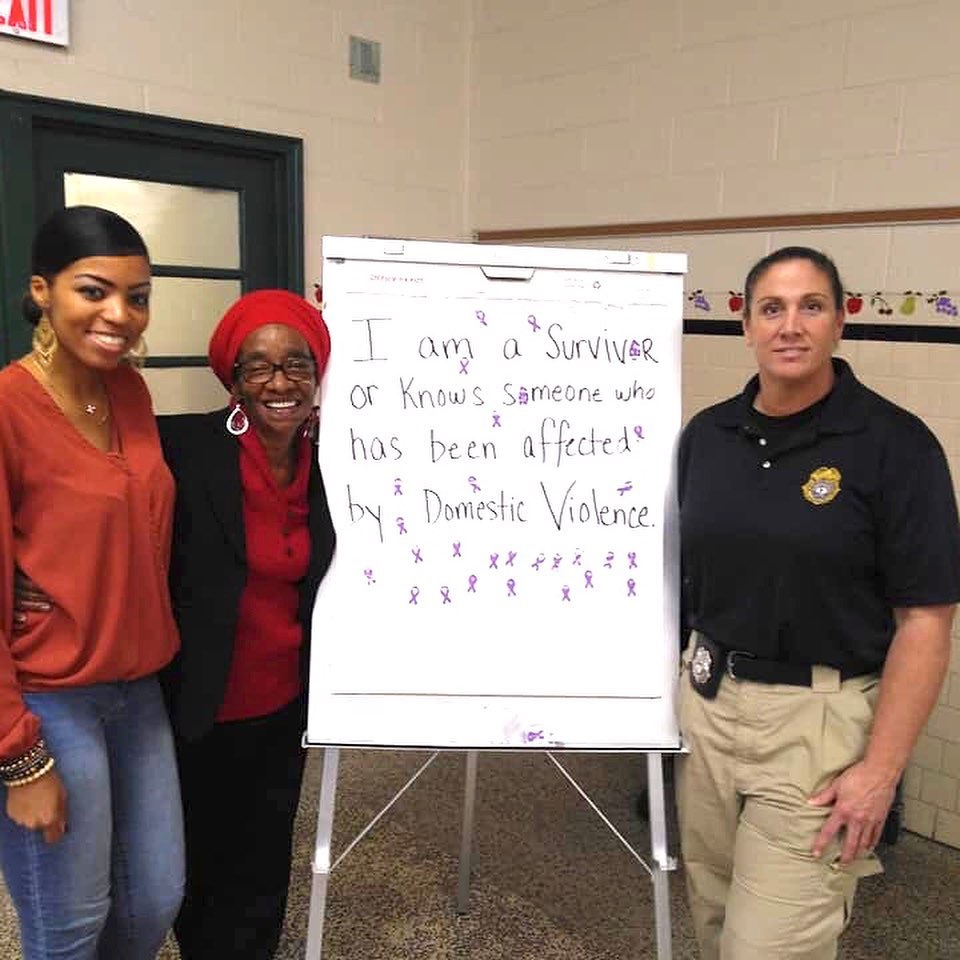 EXIT
I am a Survivor
or Knows someone who
has been affected
by Domestic Violence.